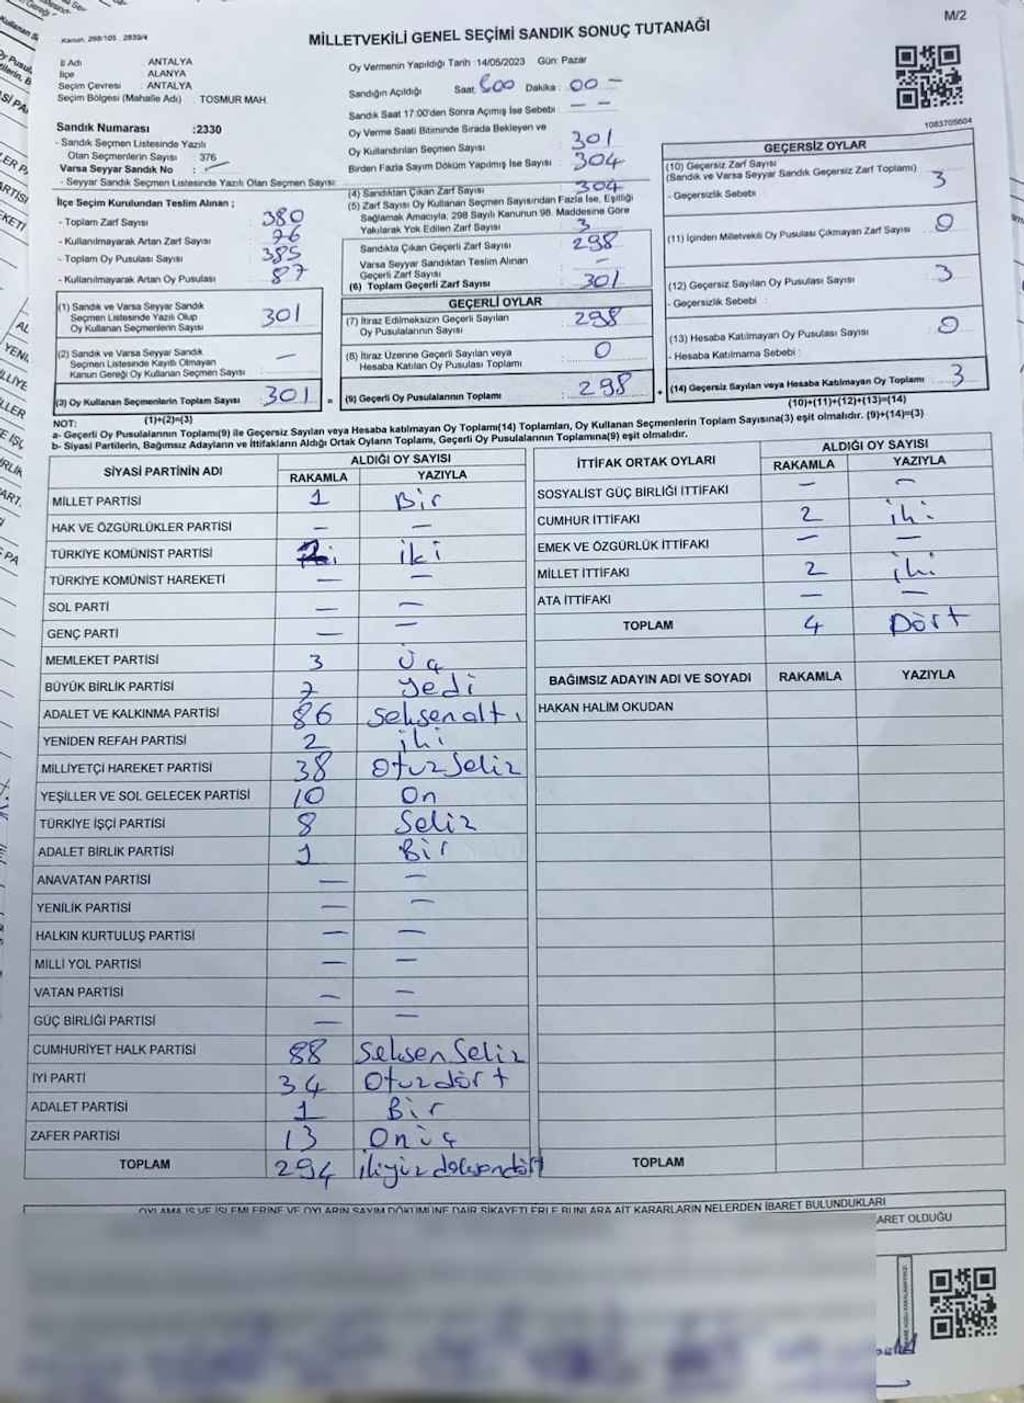 M/2
Kanun, 298/105 , 2839/4
MİLLETVEKİLİ GENEL SEÇİMİ SANDIK SONUÇ TUTANAĞI
İl Adı ANTALYA
İlçe ALANYA
Seçim Çevresi : ANTALYA
Seçim Bölgesi (Mahalle Adı) : TOSMUR MAH.
Oy Vermenin Yapıldığı Tarih :14/05/2023 Gün: Pazar
Sandığın Açıldığı Saat: Dakika : 00
Sandık Saat 17:00'den Sonra Açımış İse Sebebi — —
1083705604
Sandık Numarası :2330
- Sandık Seçmen Listesinde Yazılı
Olan Seçmenlerin Sayısı : 376
Varsa Seyyar Sandık No :
- Seyyar Sandık Seçmen Listesinde Yazılı Olan Seçmen Sayısı:
İlçe Seçim Kurulundan Teslim Alınan ;
- Toplam Zarf Sayısı 380
- Kullanılmayarak Artan Zarf Sayısı 76
- Toplam Oy Pusulası Sayısı 385
- Kullanılmayarak Artan Oy Pusulası 87
(1) Sandık ve Varsa Seyyar Sandık
Seçmen Listesinde Yazılı Olup
Oy Kullanan Seçmenlerin Sayısı 301
(2) Sandık ve Varsa Seyyar Sandık
Seçmen Listesinde Kayıtlı Olmayan
Kanun Gereği Oy Kullanan Seçmen Sayısı —
(3) Oy Kullanan Seçmenlerin Toplam Sayısı 301 =
(1)+(2)=(3)
Oy Verme Saati Bitiminde Sırada Bekleyen ve
Oy Kullandırılan Seçmen Sayısı 301
Birden Fazla Sayım Döküm Yapılmış İse Sayısı 304
(4) Sandıktan Çıkan Zarf Sayısı 304
(5) Zarf Sayısı Oy Kullanan Seçmen Sayısından Fazla İse, Eşitliği
Sağlamak Amacıyla, 298 Sayılı Kanunun 98. Maddesine Göre
Yakılarak Yok Edilen Zarf Sayısı 3
Sandıkta Çıkan Geçerli Zarf Sayısı 298
Varsa Seyyar Sandıktan Teslim Alınan
Geçerli Zarf Sayısı —
(6) Toplam Geçerli Zarf Sayısı 301
GEÇERLİ OYLAR
(7) İtiraz Edilmeksizin Geçerli Sayılan
Oy Pusulalarının Sayısı 298
(8) İtiraz Üzerine Geçerli Sayılan veya
Hesaba Katılan Oy Pusulası Toplamı 0
(9) Geçerli Oy Pusulalarının Toplamı 298 +
GEÇERSİZ OYLAR
(10) Geçersiz Zarf Sayısı
(Sandık ve Varsa Seyyar Sandık Geçersiz Zarf Toplamı) 3
- Geçersizlik Sebebi :
(11) İçinden Milletvekili Oy Pusulası Çıkmayan Zarf Sayısı 0
(12) Geçersiz Sayılan Oy Pusulası Sayısı 3
- Geçersizlik Sebebi :
(13) Hesaba Katılmayan Oy Pusulası Sayısı 0
- Hesaba Katılmama Sebebi :
(14) Geçersiz Sayılan veya Hesaba Katılmayan Oy Toplamı 3
(10)+(11)+(12)+(13)=(14)
NOT:
a- Geçerli Oy Pusulalarının Toplamı(9) ile Geçersiz Sayılan veya Hesaba katılmayan Oy Toplamı(14) Toplamları, Oy Kullanan Seçmenlerin Toplam Sayısına(3) eşit olmalıdır. (9)+(14)=(3)
b- Siyasi Partilerin, Bağımsız Adayların ve İttifakların Aldığı Ortak Oyların Toplamı, Geçerli Oy Pusulalarının Toplamına(9) eşit olmalıdır.
SİYASİ PARTİNİN ADI ALDIĞI OY SAYISI
RAKAMLA YAZIYLA
MİLLET PARTİSİ 1 Bir
HAK VE ÖZGÜRLÜKLER PARTİSİ — —
TÜRKİYE KOMÜNİST PARTİSİ 2 iki
TÜRKİYE KOMÜNİST HAREKETİ — —
SOL PARTİ — —
GENÇ PARTİ — —
MEMLEKET PARTİSİ 3 Üç
BÜYÜK BİRLİK PARTİSİ 7 yedi
ADALET VE KALKINMA PARTİSİ 86 seksenaltı
YENİDEN REFAH PARTİSİ 2 iki
MİLLİYETÇİ HAREKET PARTİSİ 38 Otuzsekiz
YEŞİLLER VE SOL GELECEK PARTİSİ 10 On
TÜRKİYE İŞÇİ PARTİSİ 8 Sekiz
ADALET BİRLİK PARTİSİ 1 Bir
ANAVATAN PARTİSİ — —
YENİLİK PARTİSİ — —
HALKIN KURTULUŞ PARTİSİ — —
MİLLİ YOL PARTİSİ — —
VATAN PARTİSİ — —
GÜÇ BİRLİĞİ PARTİSİ — —
CUMHURİYET HALK PARTİSİ 88 Seksen Sekiz
İYİ PARTİ 34 Otuzdört
ADALET PARTİSİ 1 Bir
ZAFER PARTİSİ 13 Onüç
TOPLAM 294 ikiyüz doksandört
İTTİFAK ORTAK OYLARI ALDIĞI OY SAYISI
RAKAMLA YAZIYLA
SOSYALİST GÜÇ BİRLİĞİ İTTİFAKI — —
CUMHUR İTTİFAKI 2 iki
EMEK VE ÖZGÜRLÜK İTTİFAKI — —
MİLLET İTTİFAKI 2 iki
ATA İTTİFAKI — —
TOPLAM 4 Dört
BAĞIMSIZ ADAYIN ADI VE SOYADI RAKAMLA YAZIYLA
HAKAN HALİM OKUDAN
TOPLAM
OYLAMA İŞ VE İŞLEMLERİNE VE OYLARIN SAYIM DÖKÜMÜNE DAİR ŞİKAYETLERLE BUNLARA AİT KARARLARIN NELERDEN İBARET BULUNDUKLARI
ARET OLDUĞU